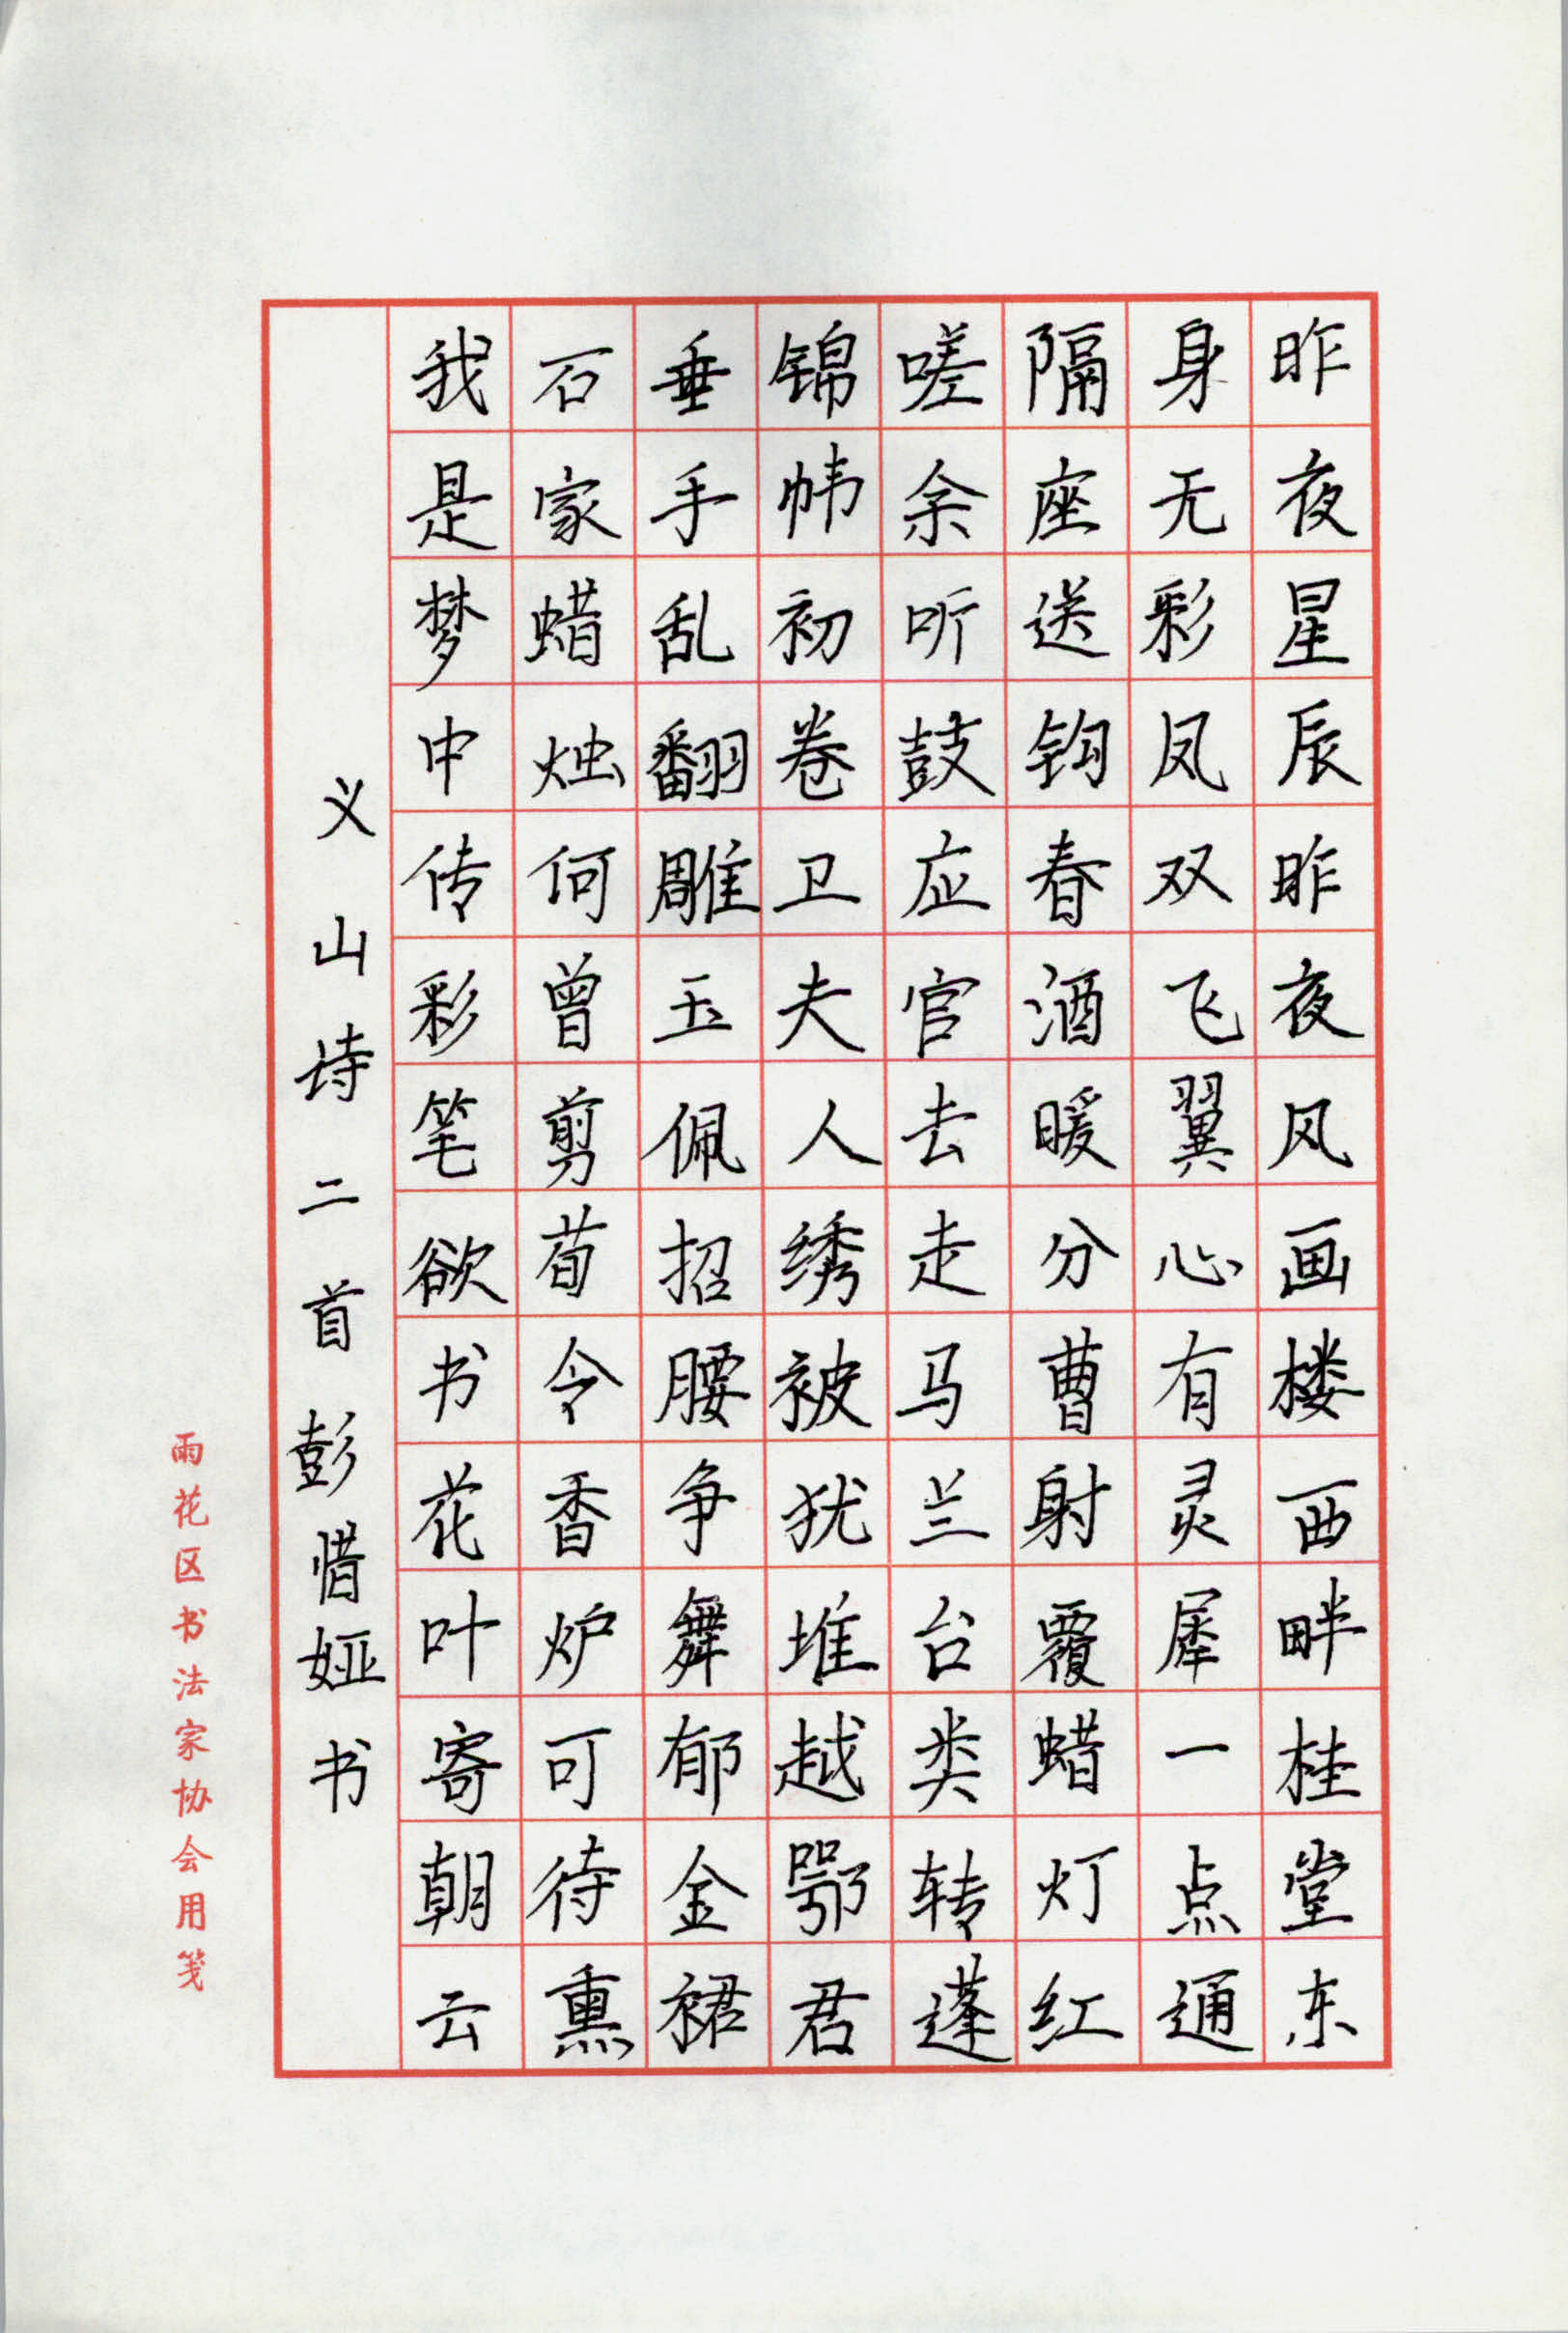 昨夜星辰昨夜风画楼西畔桂堂东
身无彩凤双飞翼心有灵犀一点通
隔座送钩春酒暖分曹射覆蜡灯红
嗟余听鼓应官去走马兰台类转蓬
锦帏初卷卫夫人绣被犹堆越鄂君
垂手乱翻雕玉佩招腰争舞郁金裙
石家蜡烛何曾剪荀令香炉可待熏
我是梦中传彩笔欲书花叶寄朝云
义山诗二首彭惜娅书
雨花区书法家协会用笺